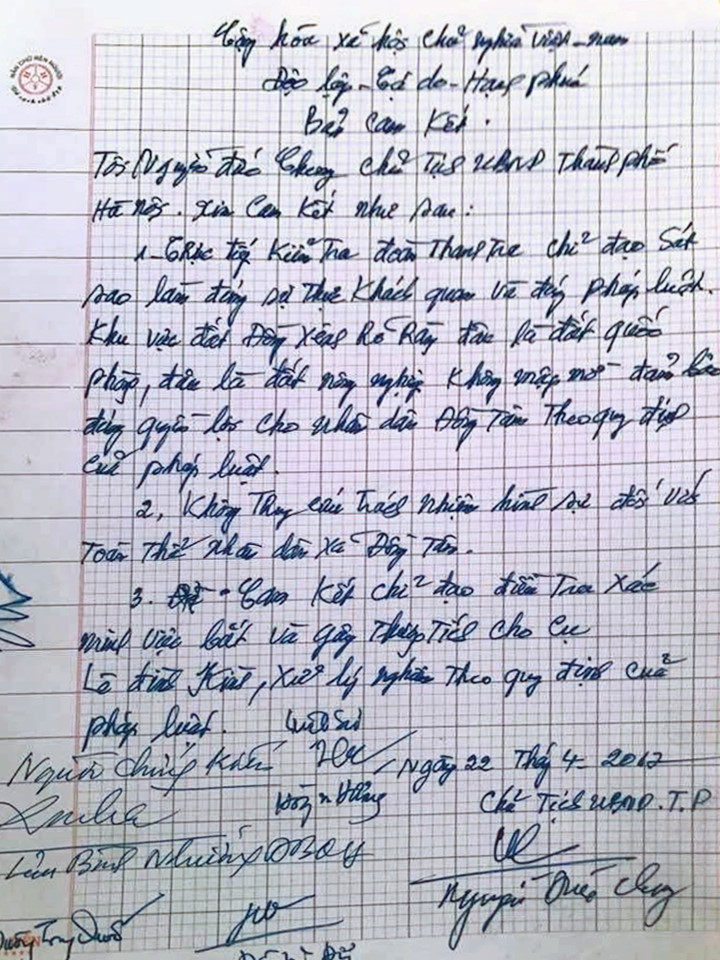 Cộng hòa xã hội chủ nghĩa việt-nam
Độc lập - Tự do - Hạnh phúc
Bản Cam Kết.
Tôi Nguyễn Đức Chung Chủ Tịch UBND Thành phố
Hà nội. Xin Cam Kết như sau:
1- Trực tiếp Kiểm Tra đoàn Thanh Tra chỉ đạo Sát
sao làm đúng sự thực Khách quan và đúng pháp luật.
Khu vực đất Đồng Xênh Rõ Ràng đâu là đất quốc
phòng, đâu là đất nông nghiệp Không mập mờ đảm bảo
đúng quyền lợi cho nhân dân Đồng Tâm Theo quy định
của pháp luật.
2, Không Truy cứu Trách nhiệm hình sự đối với
Toàn Thể nhân dân xã Đồng Tâm.
3. Cam Kết chỉ đạo điều Tra Xác
minh việc bắt và gây Thương Tích cho Cụ
Lê đình Kình, Xử lý nghiêm Theo quy định của
pháp luật. Luật Sư
Người chứng Kiến Ngày 22 Tháng 4- 2017
Chủ Tịch UBND.T.P
Lưu Bình Nhưỡng ĐBQH
Nguyễn Đức Chung
Dương Trung Quốc